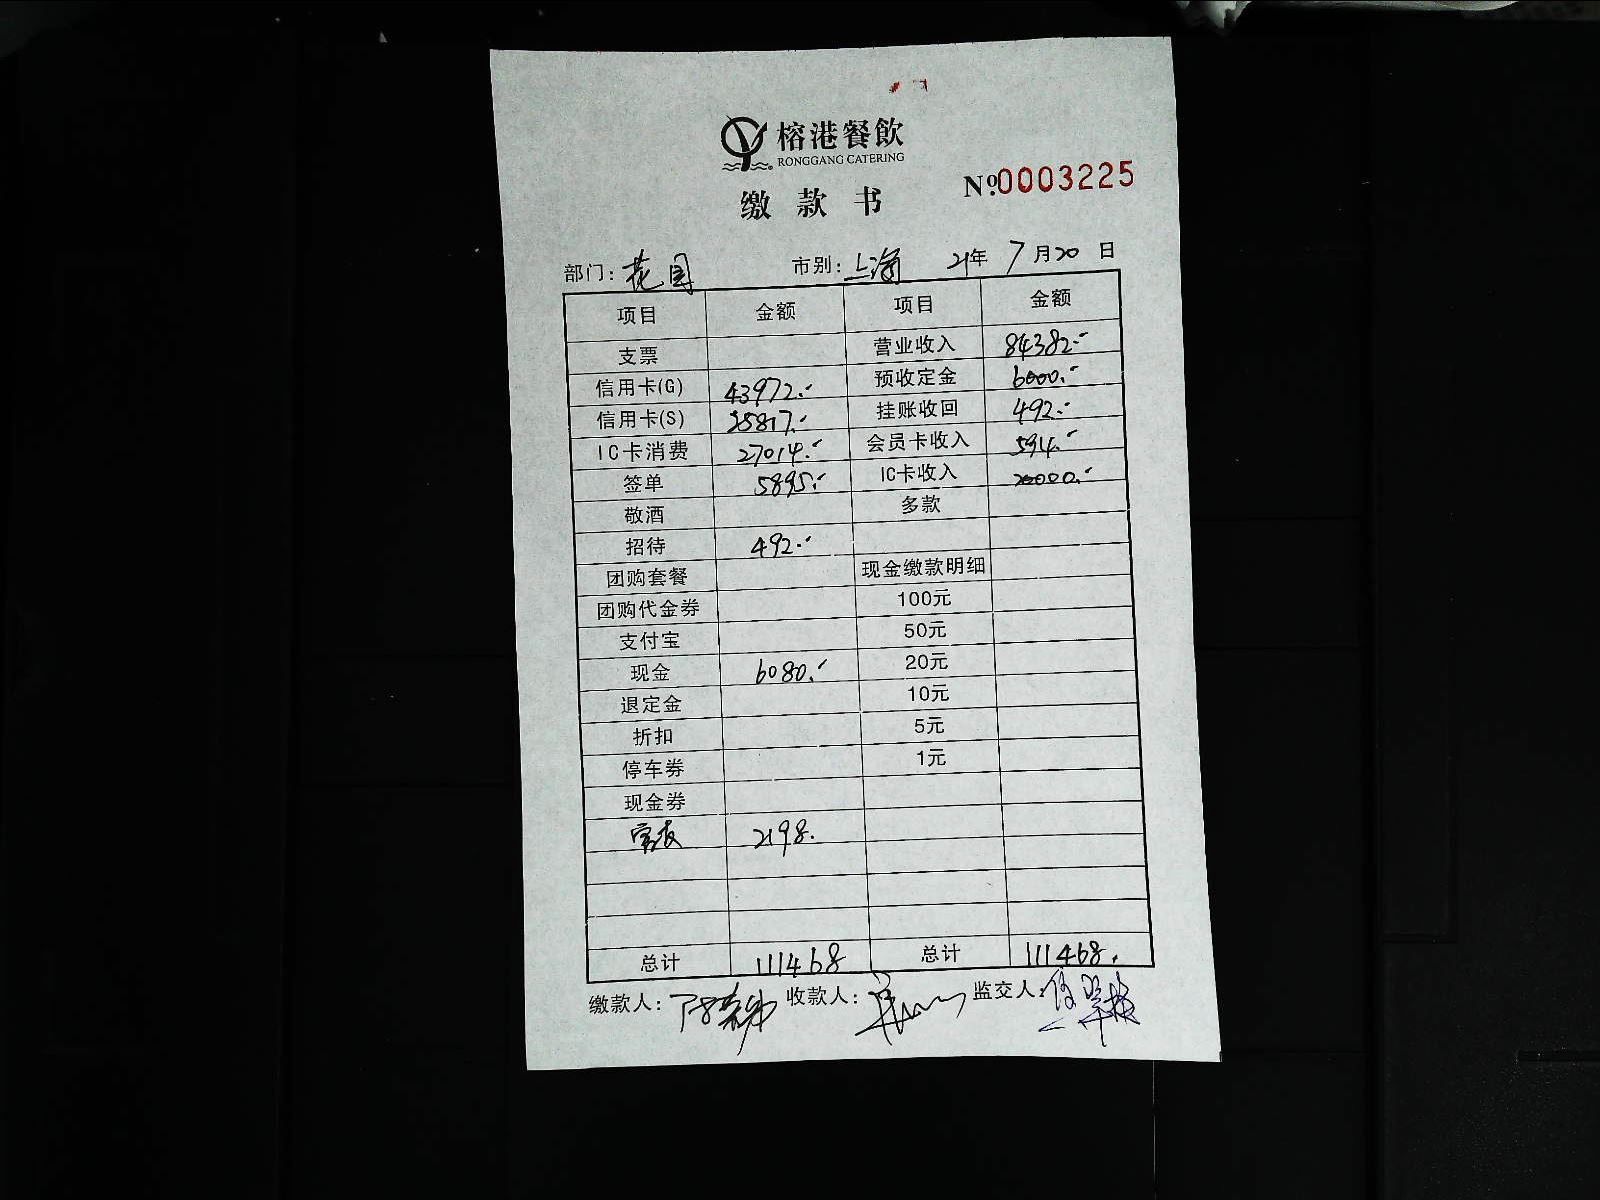 榕港餐飲
RONGGANG CATERING
缴款书
№0003225
部门: 花园 市别: 上海 21年 7月20日
项目 金额 项目 金额
支票 营业收入 84382.-
信用卡(G) 43972.- 预收定金 6000.-
信用卡(S) 25817.- 挂账收回 492.-
IC卡消费 27014.- 会员卡收入 594.-
签单 5895.- IC卡收入 20000.-
敬酒 多款
招待 492.-
团购套餐 现金缴款明细
团购代金券 100元
支付宝 50元
现金 6080.- 20元
退定金 10元
折扣 5元
停车券 1元
现金券
2198.
总计 111468 总计 111468.
缴款人: 收款人: 监交人: